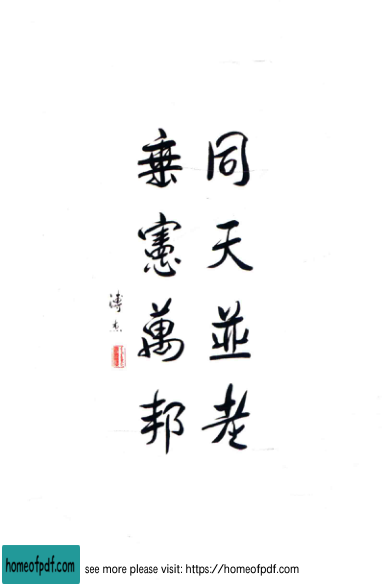 同天並老
垂憲萬邦
溥杰
homeofpdf.com
see more please visit: https://homeofpdf.com